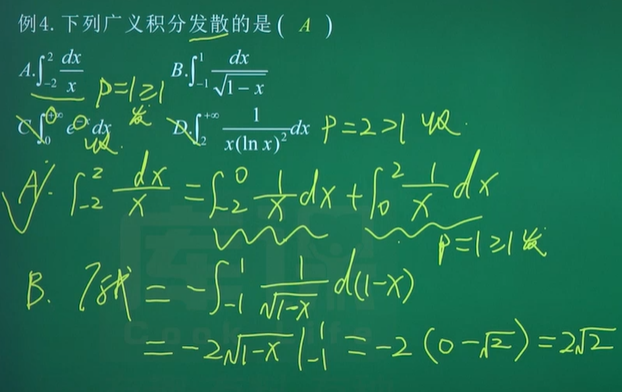 例4.下列广义积分发散的是( A )
A.∫_{-2}^{2} dx/x p=1≥1 发 B.∫_{-1}^{1} dx/√(1-x)
C.∫_{0}^{+∞} e^{-x}dx 收. D.∫_{2}^{+∞} 1/(x(ln x)^2) dx p=2>1 收.
A: ∫_{-2}^{2} dx/x = ∫_{-2}^{0} 1/x dx + ∫_{0}^{2} 1/x dx
p=1≥1 发
B. 原式 = -∫_{-1}^{1} 1/√(1-x) d(1-x)
= -2√(1-x) |_{-1}^{1} = -2(0-√2) = 2√2